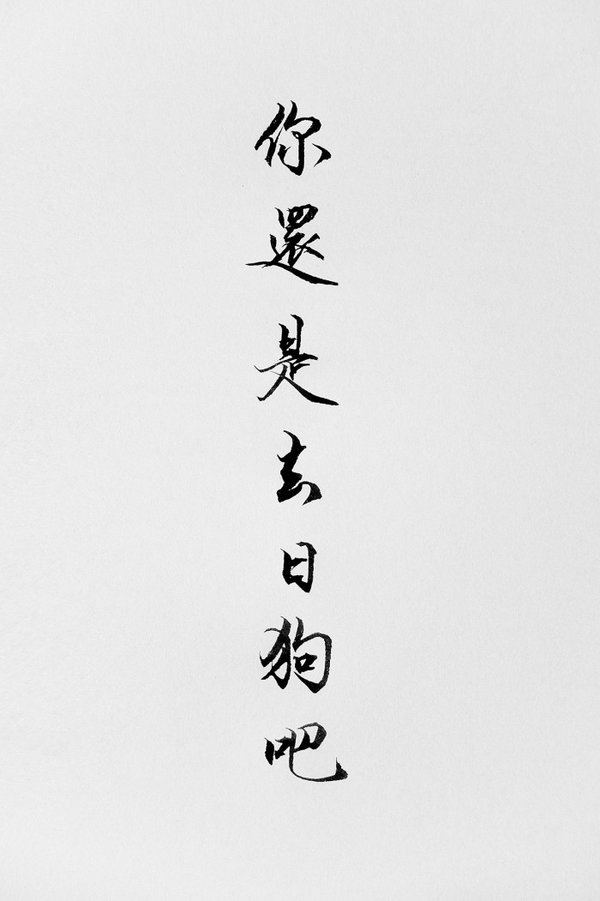 你還是去日狗吧